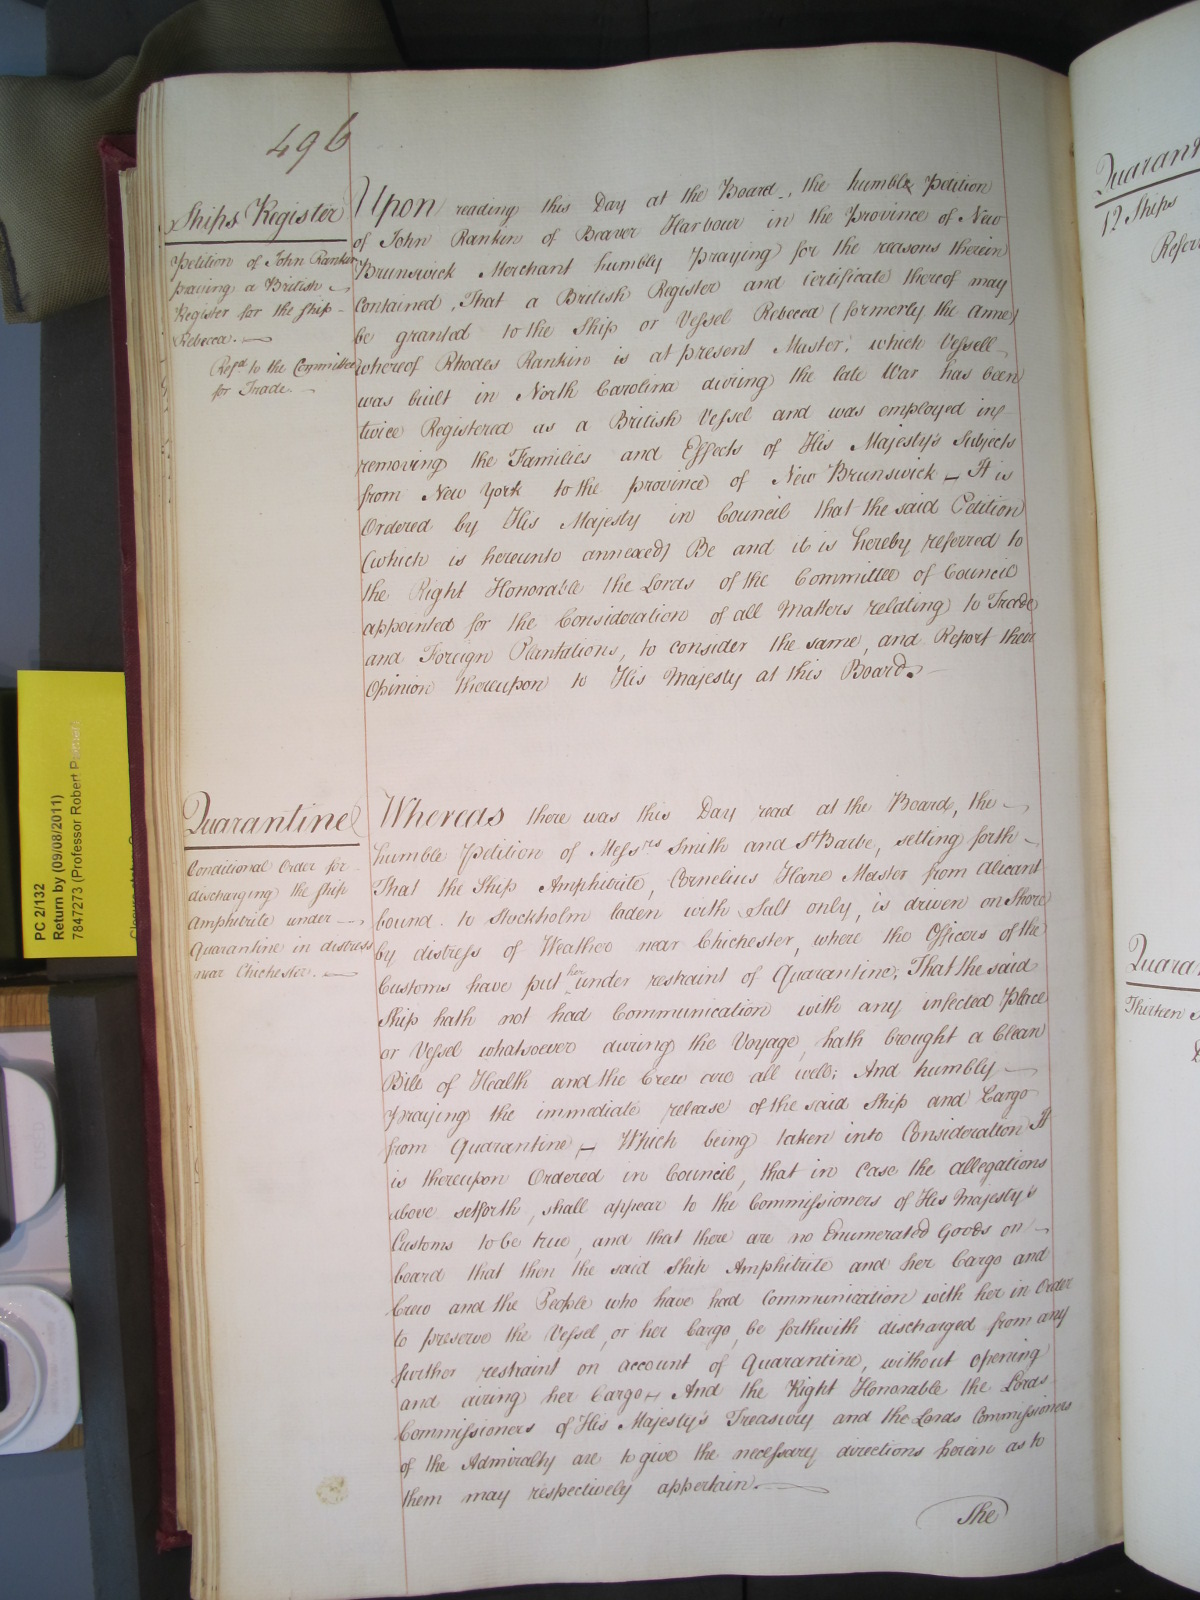 496
Ships Register
Petition of John Rankin
praying a British
Register for the ship
Rebecca.
Refd. to the Committee
for Trade.
Upon reading this Day at the Board, the humble Petition
of John Rankin of Beaver Harbour in the Province of New
Brunswick Merchant humbly praying for the reasons therein
contained, That a British Register and certificate thereof may
be granted to the Ship or Vessel Rebecca (formerly the Anne)
whereof Rhodes Rankin is at present Master; which Vessell
was built in North Carolina during the late War has been
twice Registered as a British Vessel and was employed in
removing the Families and Effects of His Majesty's Subjects
from New York to the province of New Brunswick — It is
Ordered by His Majesty in Council that the said Petition
(which is hereunto annexed) Be and it is hereby referred to
the Right Honorable the Lords of the Committee of Council
appointed for the Consideration of all Matters relating to Trade
and Foreign Plantations, to consider the same, and Report their
Opinion thereupon to His Majesty at this Board.
Quarantine
Conditional Order for
discharging the ship
Amphitrite under
Quarantine in distress
near Chichester.
Whereas there was this Day read at the Board, the
humble Petition of Messrs Smith and St Barbe, setting forth
That the Ship Amphitrite, Cornelius Hane Master from Alicant
bound to Stockholm laden with Salt only, is driven on Shore
by distress of Weather near Chichester, where the Officers of the
Customs have put her under restraint of Quarantine; That the said
Ship hath not had Communication with any infected Place
or Vessel whatsoever during the Voyage, hath brought a Clean
Bill of Health and the Crew are all well; And humbly
praying the immediate release of the said Ship and Cargo
from Quarantine — Which being taken into Consideration It
is thereupon Ordered in Council, that in case the allegations
above setforth, shall appear to the Commissioners of His Majesty's
Customs to be true, and that there are no Enumerated Goods on
board that then the said Ship Amphitrite and her Cargo and
Crew and the People who have had Communication with her in Order
to preserve the Vessel, or her Cargo, be forthwith discharged from any
further restraint on account of Quarantine, without opening
and airing her Cargo — And the Right Honorable the Lords
Commissioners of His Majesty's Treasury and the Lords Commissioners
of the Admiralty are to give the necessary directions herein as to
them may respectively appertain.
The
PC 2/132
Return by (09/08/2011)
7847273 (Professor Robert
Quarant
12 Ships
Refer
Quaran
Thirteen